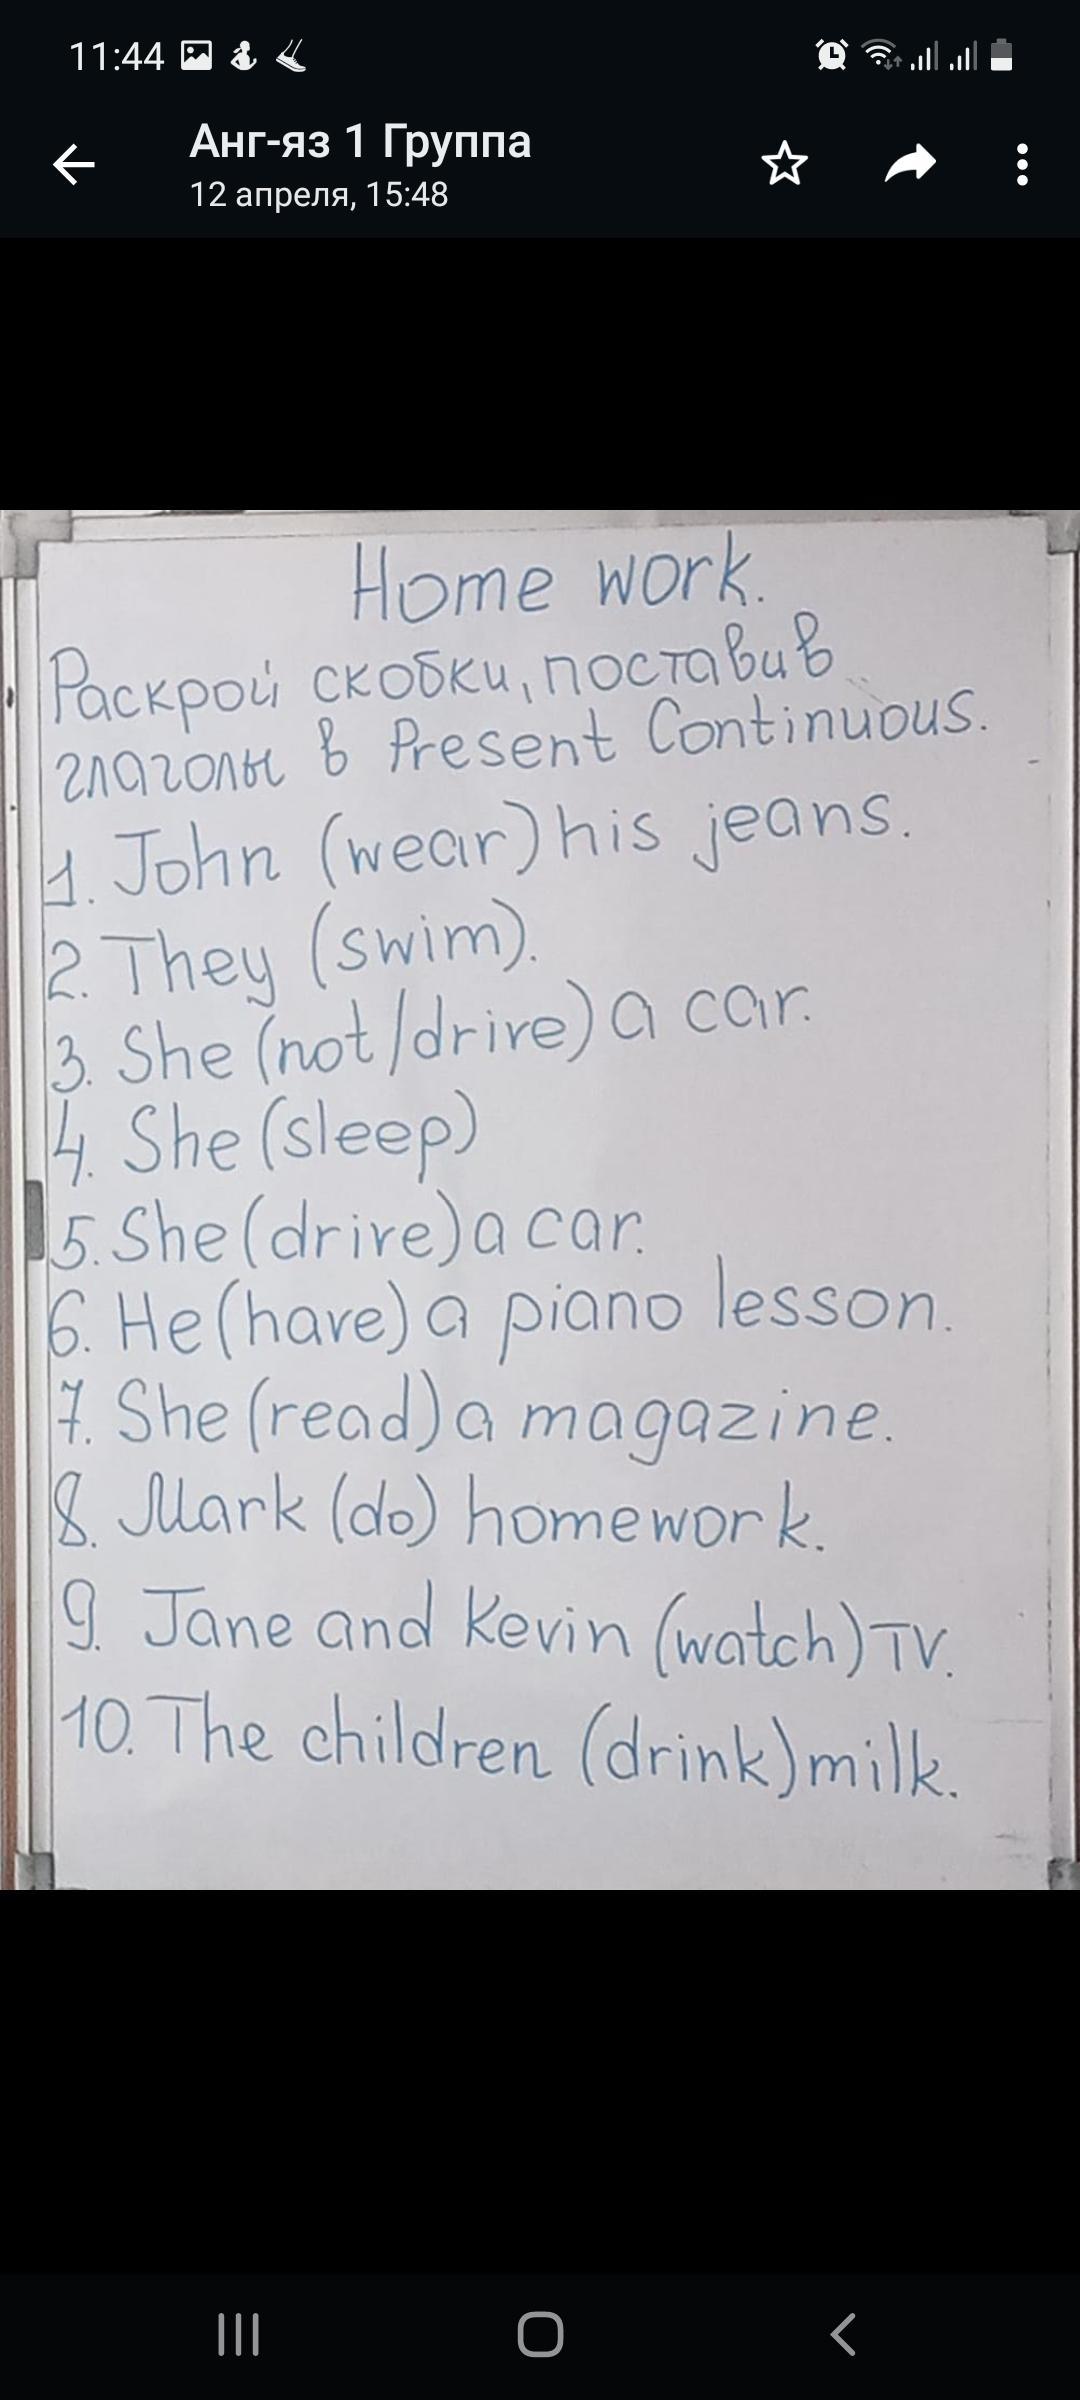 11:44
Анг-яз 1 Группа
12 апреля, 15:48
Home work.
Раскрой скобки, поставив
глаголы в Present Continuous.
1. John (wear) his jeans.
2. They (swim).
3. She (not/drive) a car.
4. She (sleep)
5. She (drive) a car.
6. He (have) a piano lesson.
7. She (read) a magazine.
8. Mark (do) homework.
9. Jane and Kevin (watch) TV.
10. The children (drink) milk.